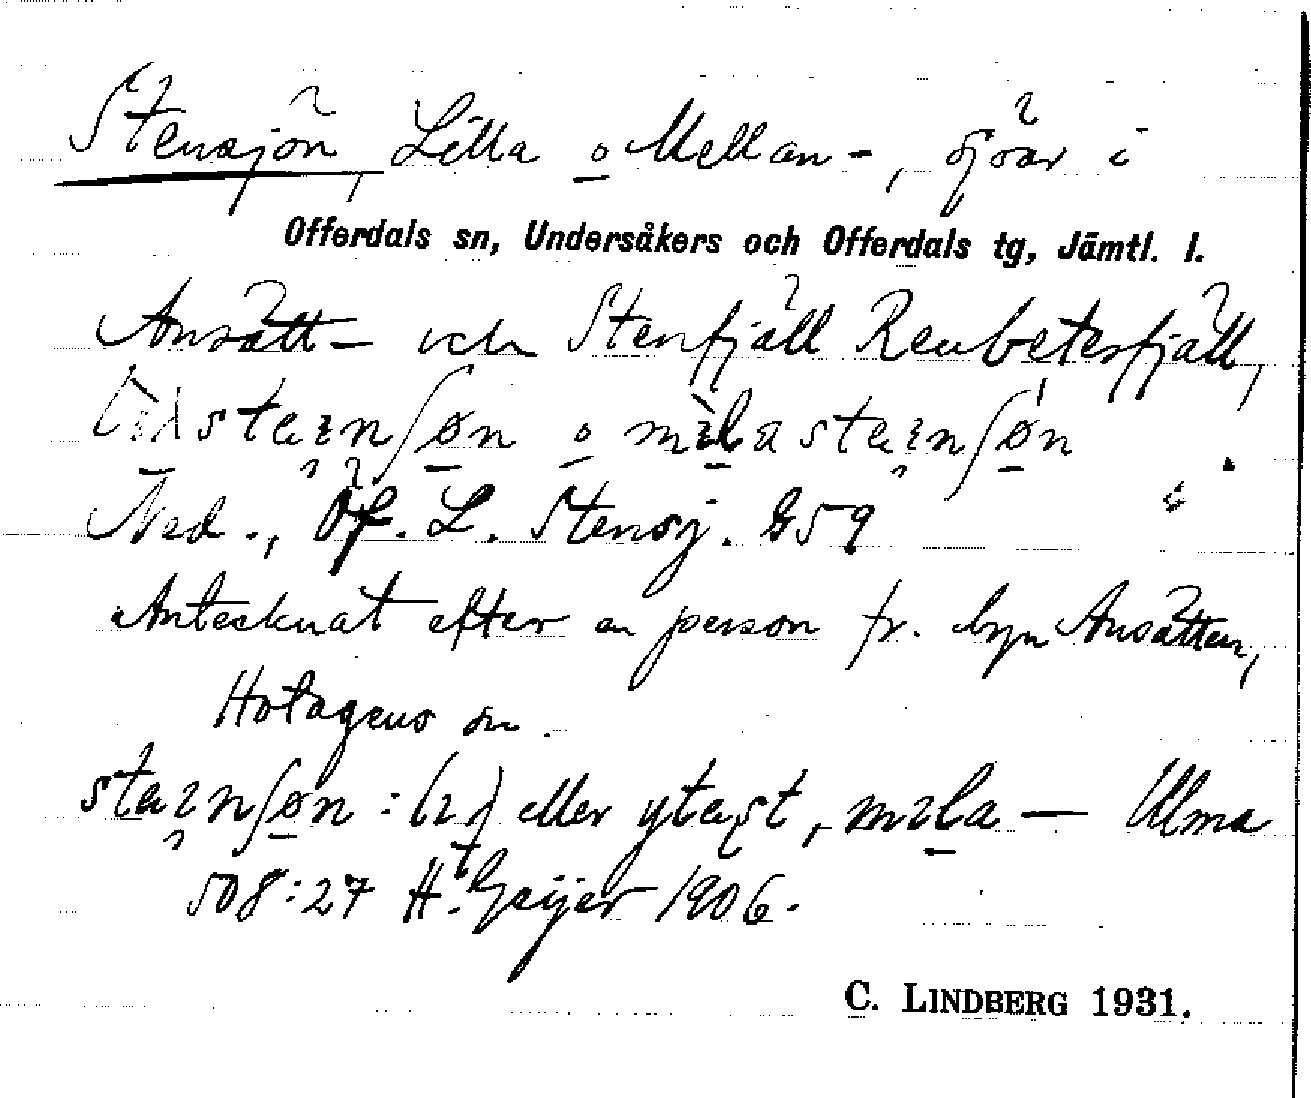 Stensjön, Lilla o Mellan-, sjöar i
Offerdals sn, Undersåkers och Offerdals tg, Jämtl. l.
Ansätt- och Stenfjäll Renbetesfjäll,
staınʃøn o mıla staınʃøn
Ned., Öf. L. Stensj. G59
Antecknat efter en person fr. byn Ansätten,
Hotagens sn.
staınʃøn : (ı) eller ytaʂt, mıla — Ulma
508:27 H. Geijer 1906.
C. LINDBERG 1931.